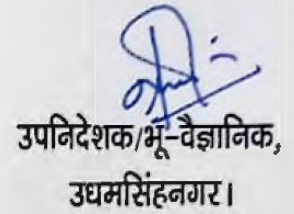 उपनिदेशक/भू-वैज्ञानिक,
उधमसिंहनगर।